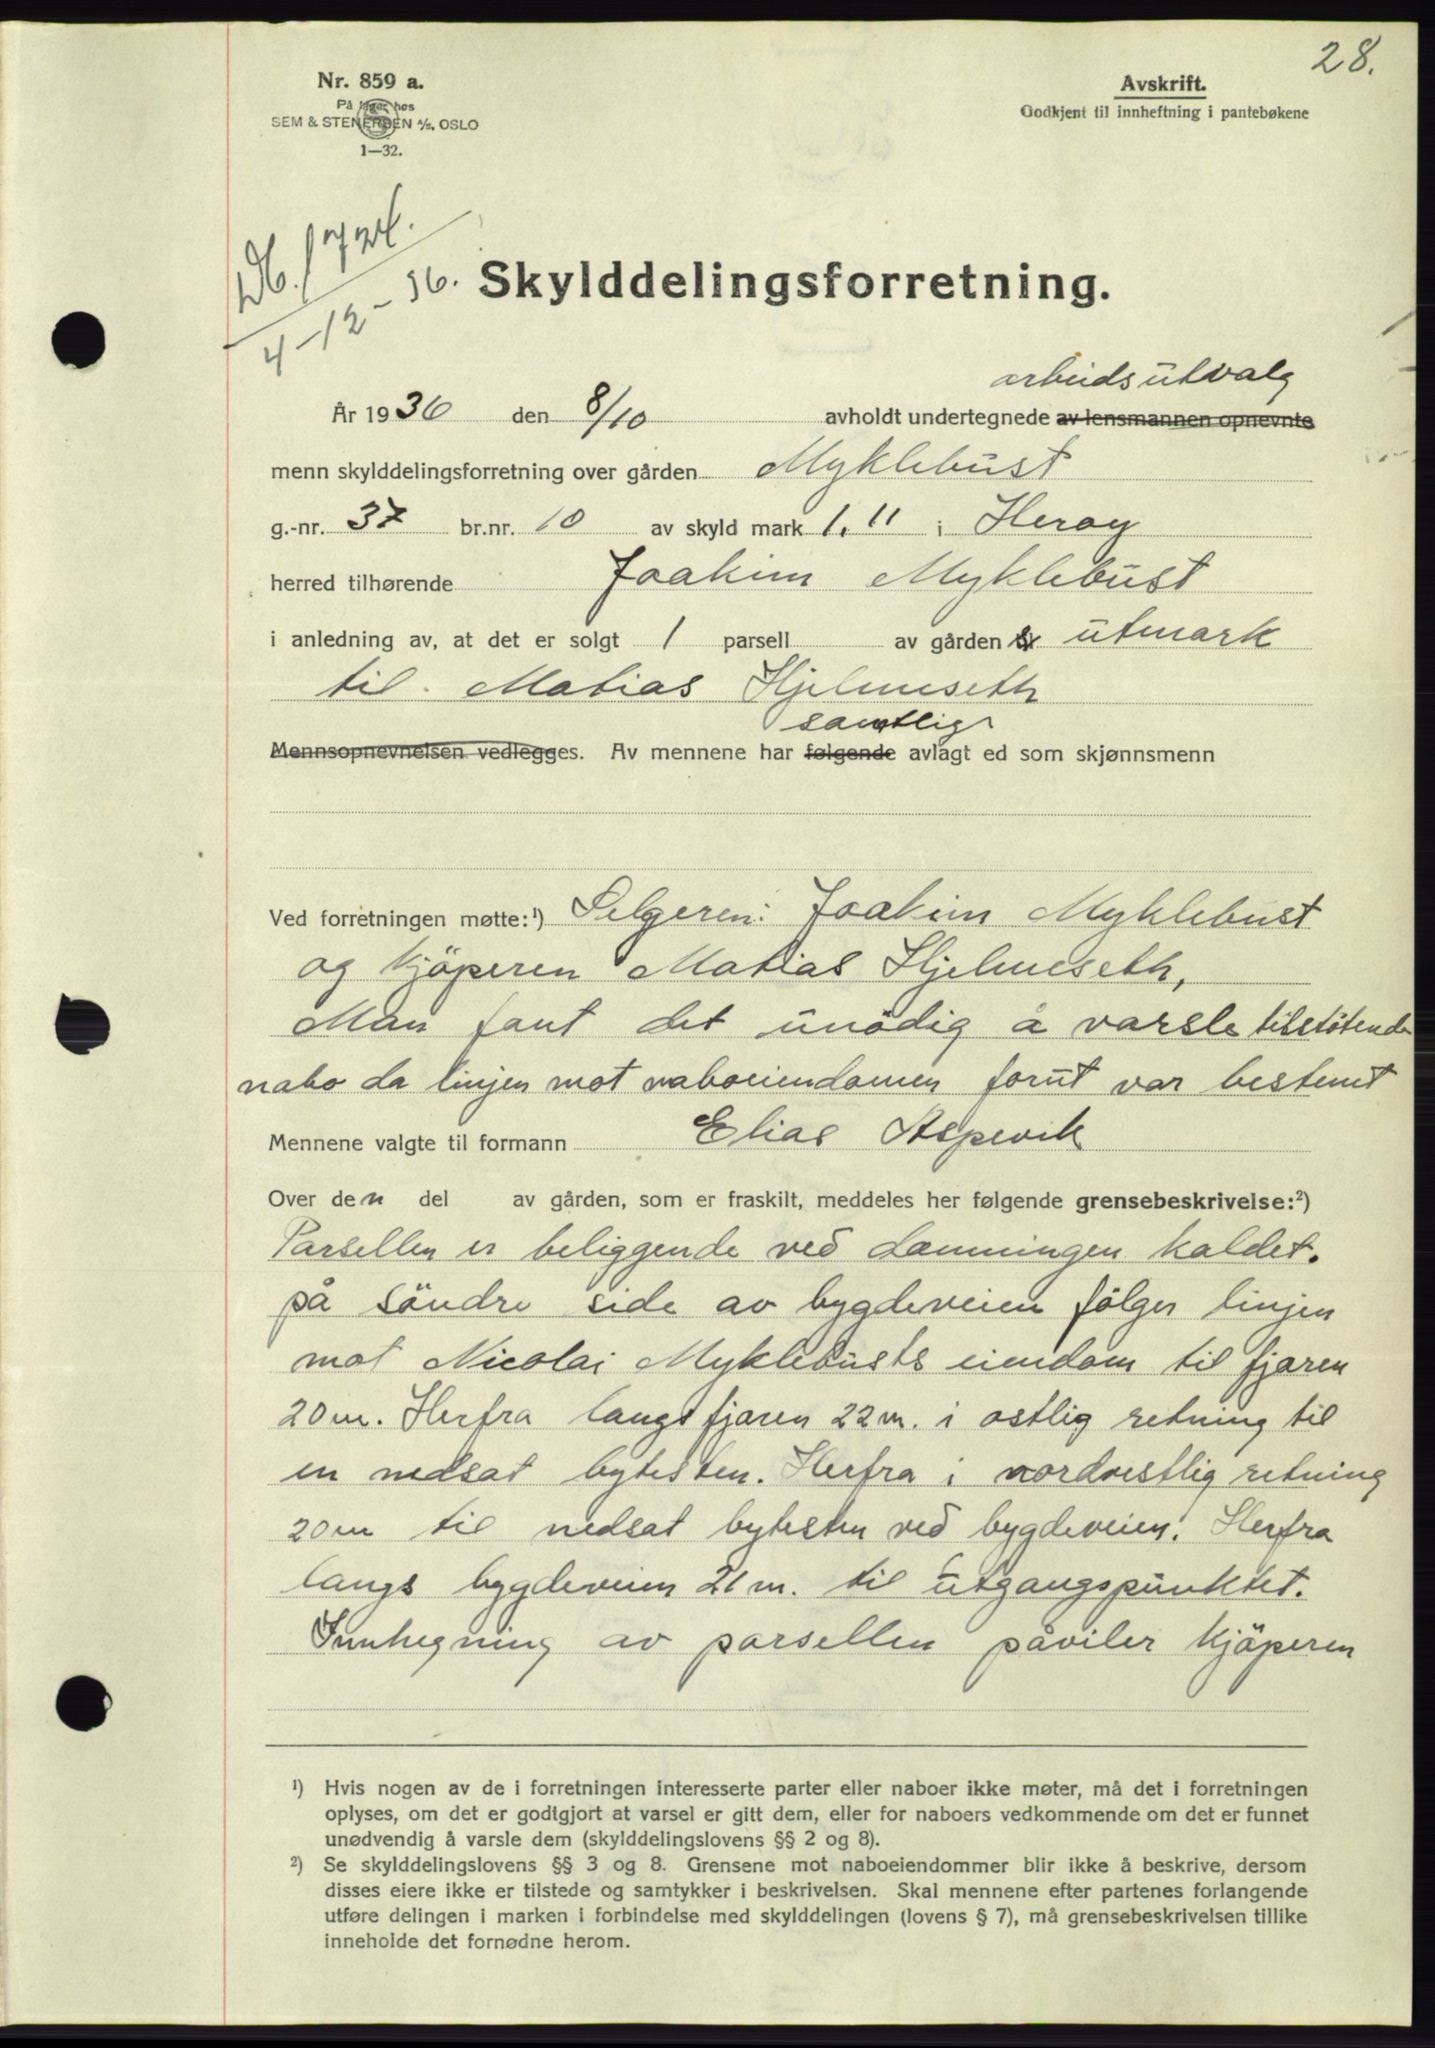 28.
Nr. 859 a.
På lager hos
SEM & STENERSEN A/S, OSLO
1—32.
Avskrift.
Godkjent til innheftning i pantebøkene
Db. / 724.
4-12-36.
Skylddelingsforretning.
arbeidsutvalg
År 1936 den 8/10 avholdt undertegnede av lensmannen opnevnte
menn skylddelingsforretning over gården Myklebust
g.-nr. 37 br.nr. 10 av skyld mark 1.11 i Herøy
herred tilhørende Joakim Myklebust
i anledning av, at det er solgt 1 parsell av gården utmark
til Matias Hjelmeseth
samtlige
Mennsopnevnelsen vedlegges. Av mennene har følgende avlagt ed som skjønnsmenn
Ved forretningen møtte:¹) Selgeren: Joakim Myklebust
og kjöperen Matias Hjelmeseth,
Man fant det unödig å varsle tilstötende
nabo da linjen mot naboeiendomen forut var bestemt
Mennene valgte til formann Elias Aspevik
Over den del av gården, som er fraskilt, meddeles her følgende grensebeskrivelse:²)
Parsellen er beliggende ved Lemningen kaldet.
på söndre side av bygdeveien fölger linjen
mot Nicolai Myklebusts eiendom til fjæren
20 m. Herfra langs fjæren 22 m. i østlig retning til
en nedsat bytesten. Herfra i nordvestlig retning
20 m til nedsat bytesten ved bygdeveien. Herfra
langs bygdeveien 21 m. til utgangspunktet.
Innhegning av parsellen påviler kjöperen
¹) Hvis nogen av de i forretningen interesserte parter eller naboer ikke møter, må det i forretningen
oplyses, om det er godtgjort at varsel er gitt dem, eller for naboers vedkommende om det er funnet
unødvendig å varsle dem (skylddelingslovens §§ 2 og 8).
²) Se skylddelingslovens §§ 3 og 8. Grensene mot naboeiendommer blir ikke å beskrive, dersom
disses eiere ikke er tilstede og samtykker i beskrivelsen. Skal mennene efter partenes forlangende
utføre delingen i marken i forbindelse med skylddelingen (lovens § 7), må grensebeskrivelsen tillike
inneholde det fornødne herom.